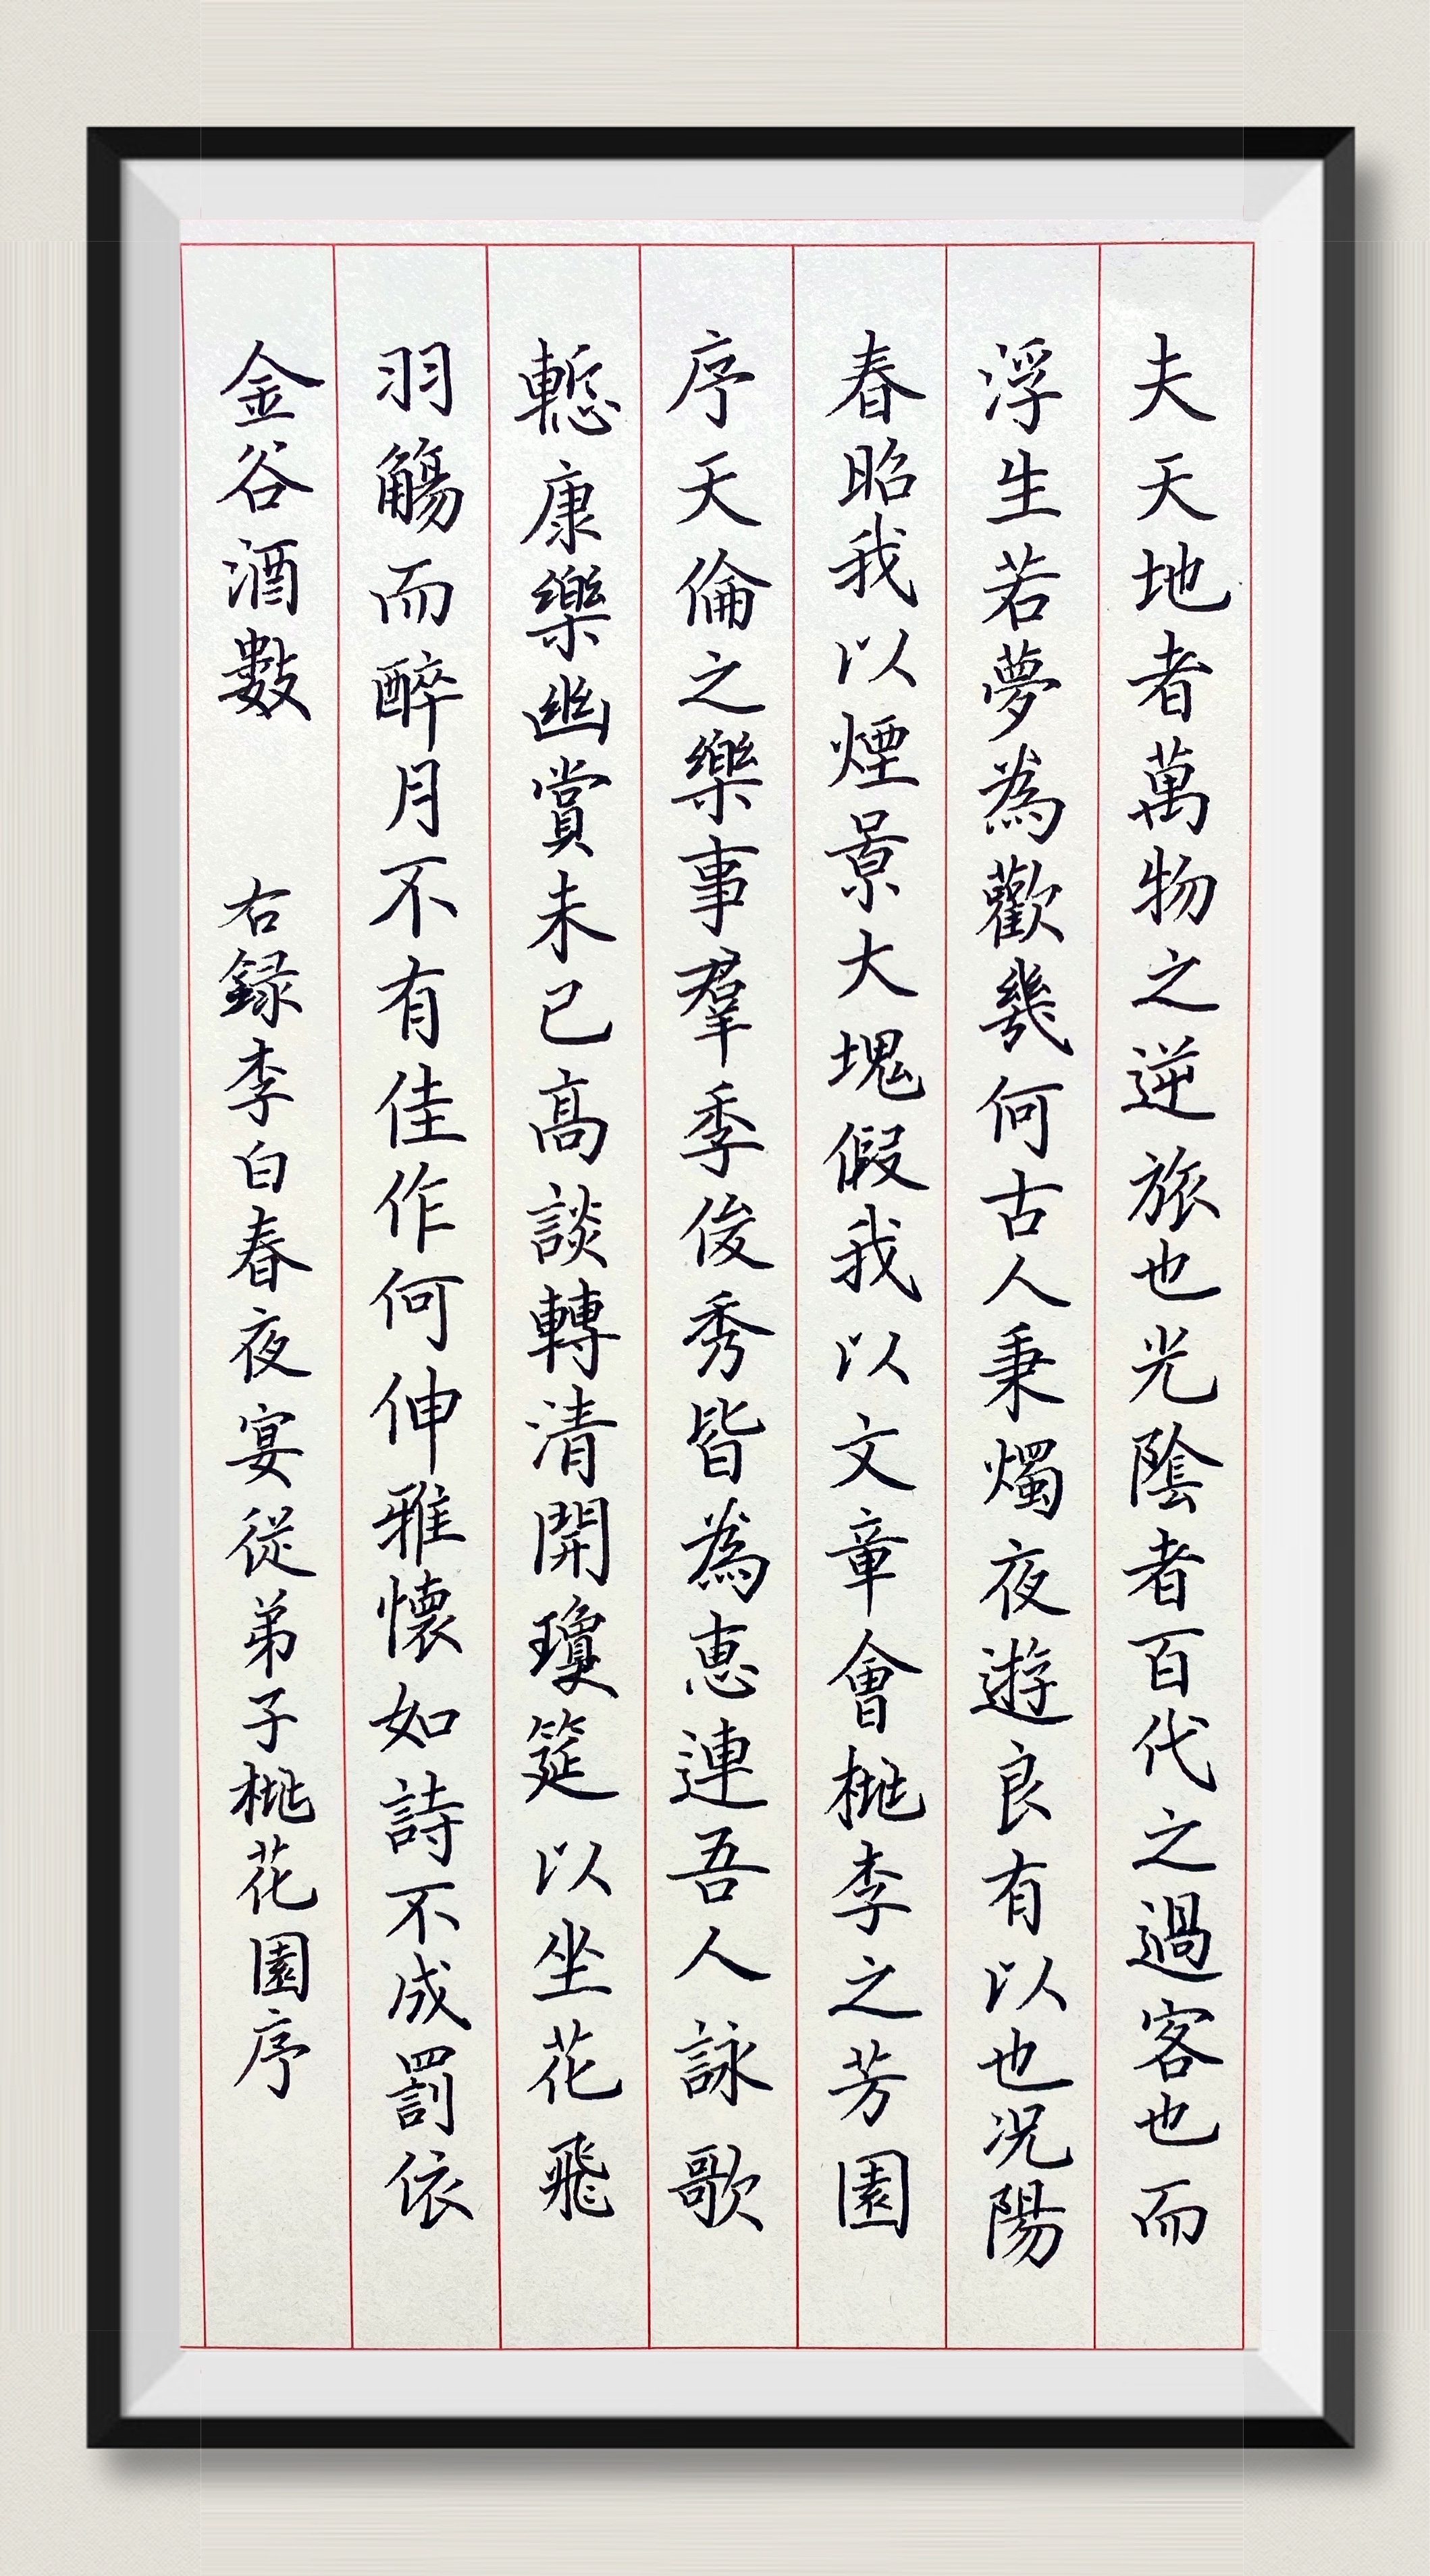 夫天地者萬物之逆旅也光陰者百代之過客也而
浮生若夢為歡幾何古人秉燭夜遊良有以也況陽
春昭我以煙景大塊假我以文章會桃李之芳園
序天倫之樂事羣季俊秀皆為惠連吾人詠歌
慙康樂幽賞未已高談轉清開瓊筵以坐花飛
羽觴而醉月不有佳作何伸雅懷如詩不成罰依
金谷酒數 右録李白春夜宴從弟子桃花園序